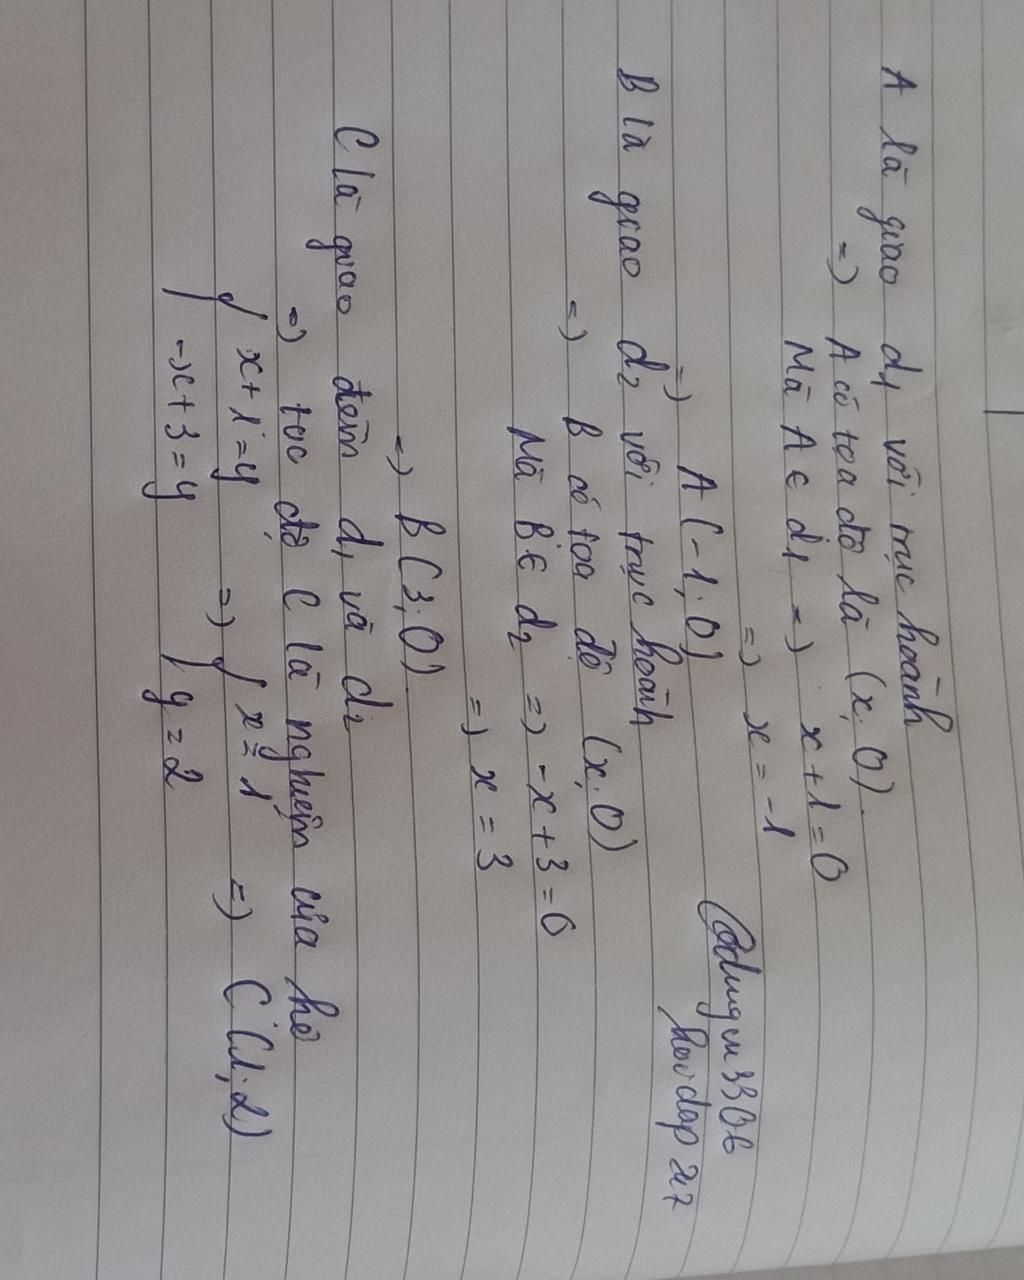 A là giao d₁ với trục hoành
=) A có toạ độ là (x; 0).
Mà A ∈ d₁ =) x + 1 = 0
=) x = -1
=) A (-1; 0)
B là giao d₂ với trục hoành
=) B có toạ độ (x; 0)
Mà B ∈ d₂ =) -x + 3 = 0
=) x = 3
=) B (3; 0)
C là giao điểm d₁ và d₂
=) toạ độ C là nghiệm của hệ
{ x + 1 = y =) { x = 1 =) C (1; 2)
-x + 3 = y y = 2
hoidap 247